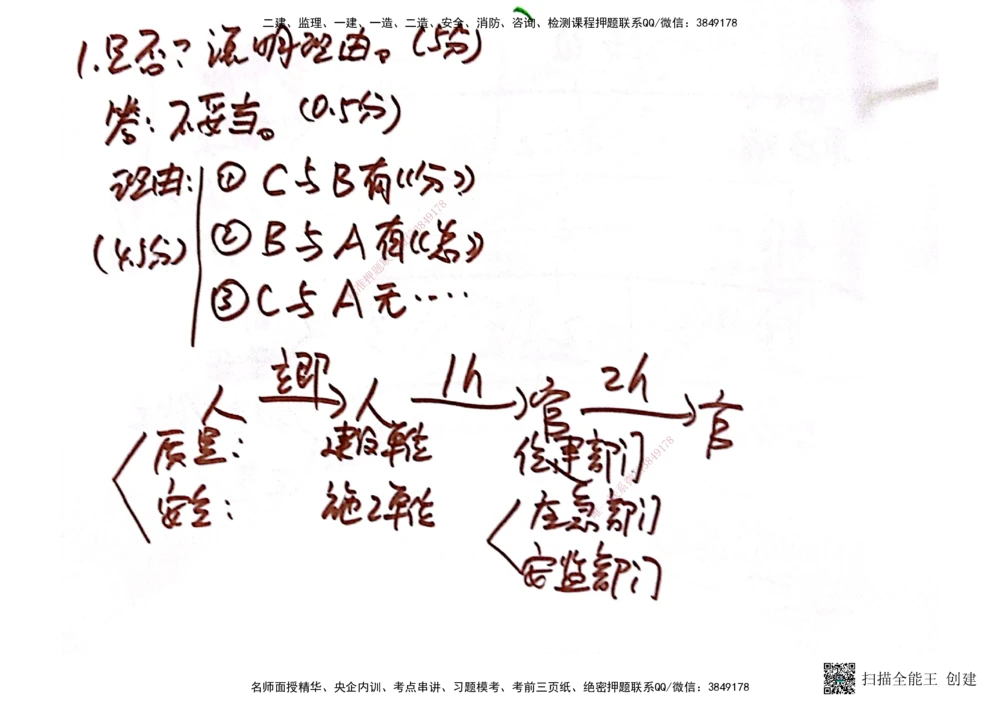 二建、监理、一建、一造、二造、安全、消防、咨询、检测课程押题联系QQ/微信：3849178
1.是否？说明理由。（5分）
答：不妥当。（0.5分）
理由：① C与B有《分》
（4.5分） ② B与A有《总》
③ C与A无····
人 立即 人 1h 官 2h 官
质量： 建设单位 住建部门
安全： 施工单位 应急部门
安监部门
名师面授精华、央企内训、考点串讲、习题模考、考前三页纸、绝密押题联系QQ/微信：3849178
扫描全能王 创建